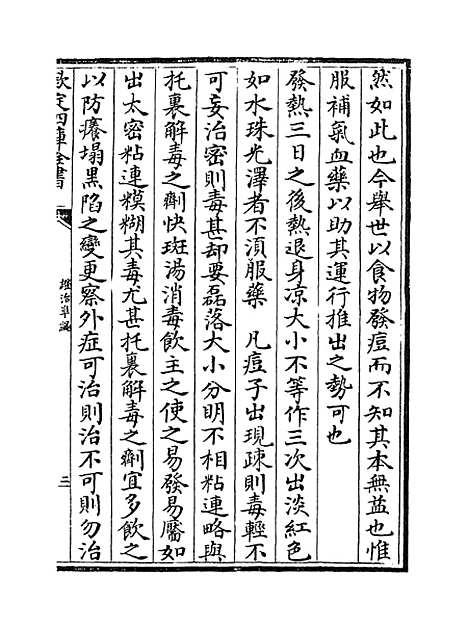 然如此也今舉世以食物發痘而不知其本無益也惟
服補氣血藥以助其運行推出之勢可也
發熱三日之後熱退身凉大小不等作三次出淡紅色
如水珠光澤者不湏服藥　凡痘子出現疎則毒輕不
可妄治密則毒甚却要磊落大小分明不相粘連略與
托裏解毒之劑快斑湯消毒飲主之使之易發易靨如
出太密粘連糢糊其毒尤甚托裏解毒之劑宜多飲之
以防癢塌黒陷之變更察外症可治則治不可則勿治
欽定四庫全書
證治準繩
三